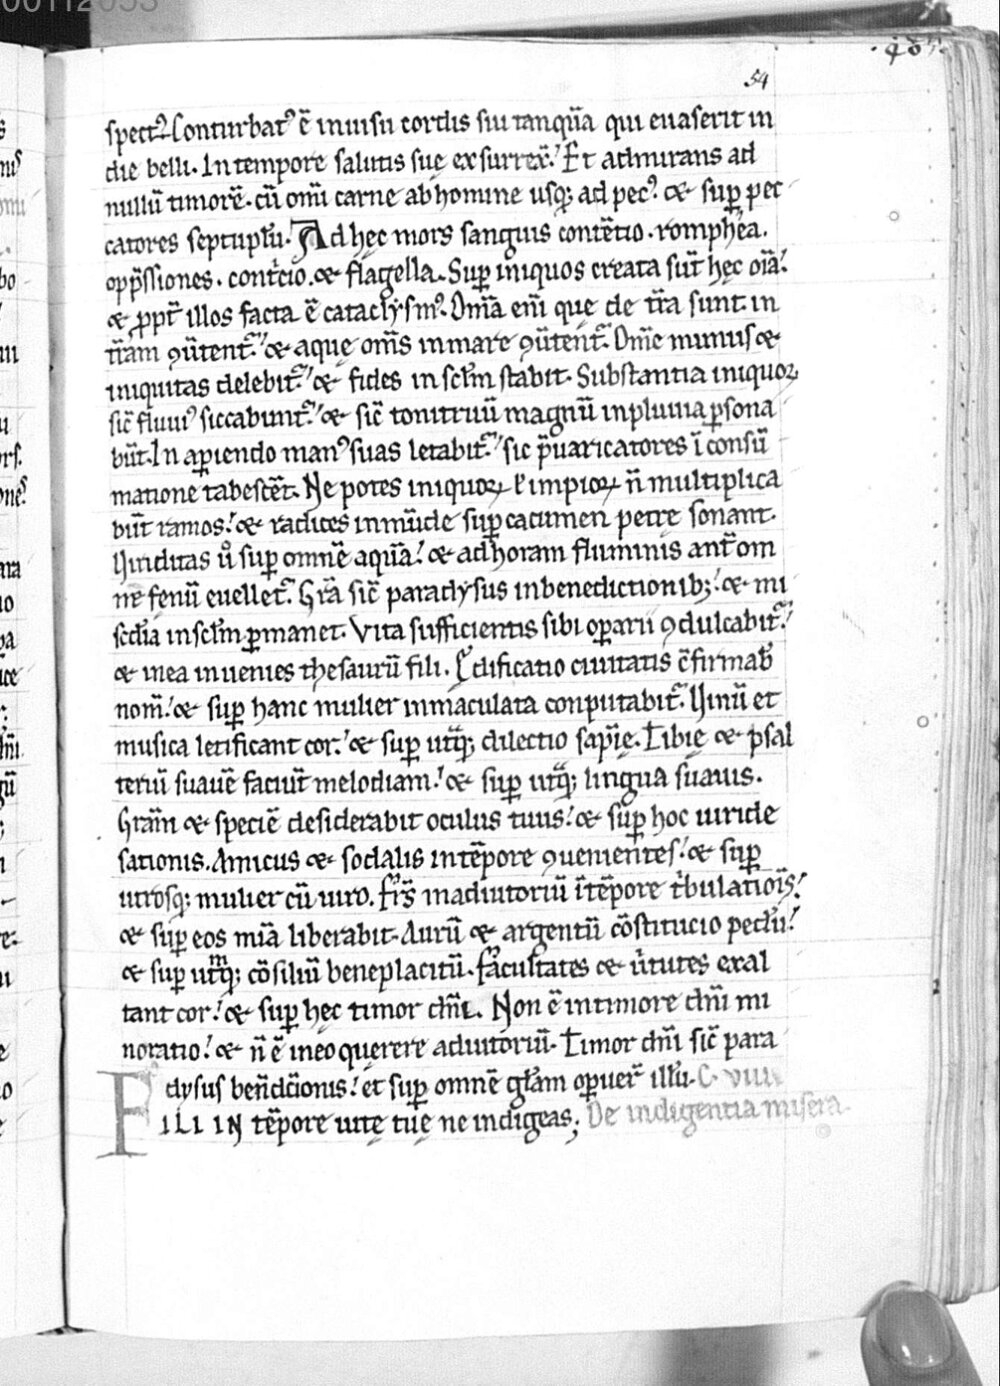 00112053
·48·
54
spectꝰ. Conturbatꝰ ē inuisu cordis sui tanquā qui euaserit in
die belli. In tempore salutis suę exsurrex̄. Et admirans ad
nullū timorē. cū om̄i carne ab homine usq; ad pecꝰ. & suꝑ pec
catores septuplū. Ad hęc mors sanguis contētio. romphea.
opp̄ssiones. contͥcio. & flagella. Suꝑ iniquos creata sūt hęc oīa.
& ꝓpt̄ illos facta ē cataclysmꝰ. Om̄ia enī quę de tr̄a sunt in
tr̄am ꝯūtentͬ. & aquę om̄s in mare ꝯūtentͬ. Om̄e munus &
iniquitas delebitͬ. & fides in sc̄lm stabit. Substantia iniquoꝝ
sic̄ fluuiꝰ siccabuntͬ. & sic̄ tonitruū magnū in pluuia ꝑsona
būt. In aꝑiendo manꝰ suas letabitͬ. sic p̄uaricatores ī consū
matione tabescēt. Nepotes iniquoꝝ ł impioꝝ n̄ multiplica
būt ramos. & radices inmūdę suꝑ cacumen petre sonant.
Uiriditas ů suꝑ omnē aquā. & ad horam fluminis ant̄ om
ne fenū euelletͬ. Gr̄a sic̄ paradysus in benedictionib;. & mi
sc̄dia in sc̄lm ꝑmanet. Vita sufficientis sibi oꝑarii ꝯdulcabitͬ.
& in ea inuenies thesaurū fili. Ędificatio ciuitatis ɔ̄firmab̄
nom̄. & suꝑ hanc mulier inmaculata conputabitͬ. Uinū et
musica letificant cor. & suꝑ utͣq; dilectio sapię̄. Tibię & psal
teriū suauē faciūt melodiam. & suꝑ utͣq; lingua suauis.
Gr̄am & speciē desiderabit oculus tuus. & suꝑ hoc uiride
sationis. Amicus & sodalis in tēpore ꝯuenientes. & suꝑ
utrosq; mulier cū uiro. Fr̄s in adiutoriū ī tēpore tͥbulatiōis.
& suꝑ eos mīa liberabit. Aurū & argentū cōstitucio pedū.
& suꝑ utͫq; cōsiliū beneplacitū. Facultates & ūtutes exal
tant cor. & suꝑ hęc timor dn̄i. Non ē in timore dn̄i mi
noratio. & n̄ ē in eo querere adiutoriū. Timor dn̄i sic̄ para
dysus ben̄dc̄ionis. et suꝑ omnē gl̄am oꝑuer̄ illū. C. viiii
FILI IN tēpore uitę tuę ne indigeas; De indigentia misera.